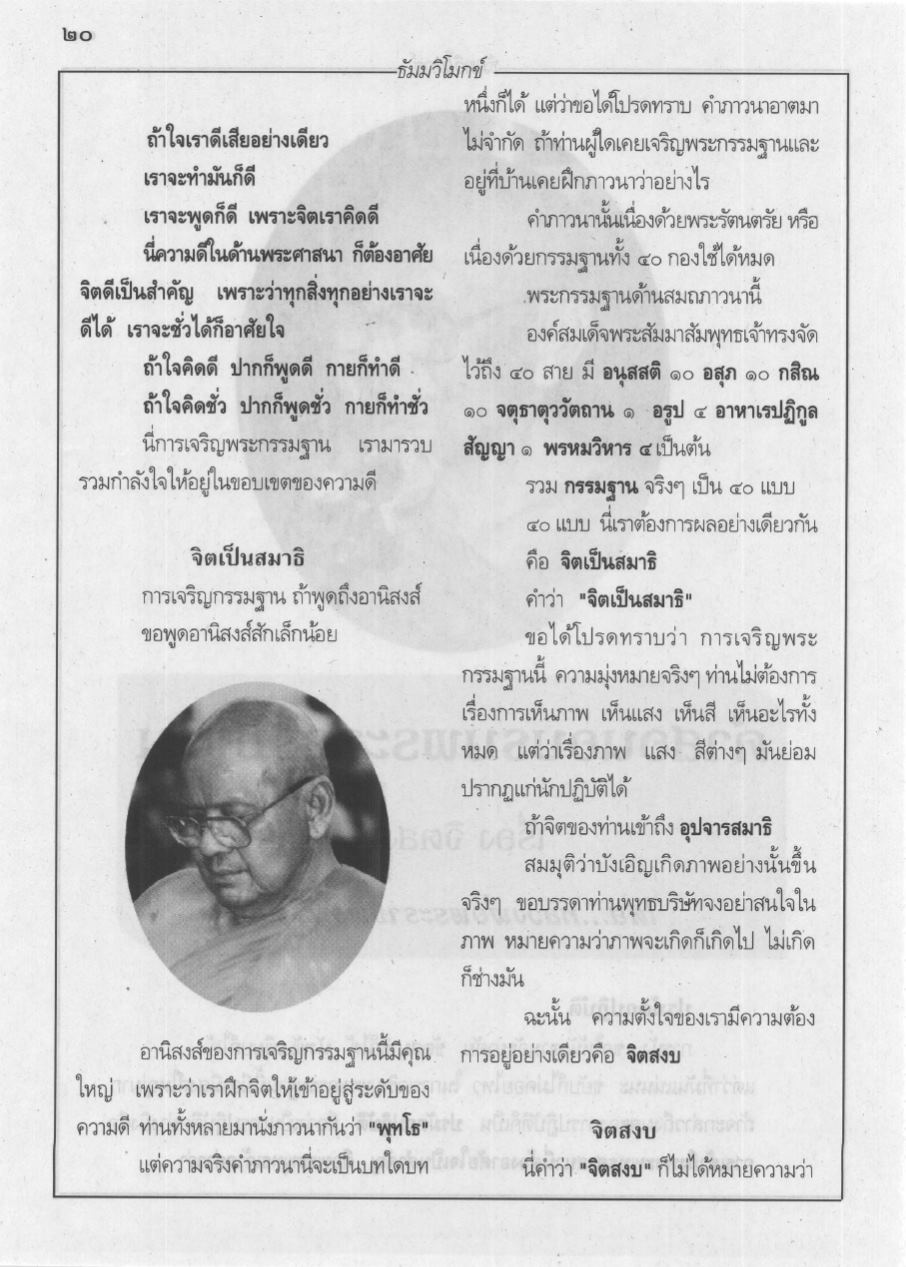 ๒๐
ธัมมวิโมกข์
ถ้าใจเราดีเสียอย่างเดียว
เราจะทำมันก็ดี
เราจะพูดก็ดี เพราะจิตเราคิดดี
นี่ความดีในด้านพระศาสนา ก็ต้องอาศัย
จิตดีเป็นสำคัญ เพราะว่าทุกสิ่งทุกอย่างเราจะ
ดีได้ เราจะชั่วได้ก็อาศัยใจ
ถ้าใจคิดดี ปากก็พูดดี กายก็ทำดี
ถ้าใจคิดชั่ว ปากก็พูดชั่ว กายก็ทำชั่ว
นี่การเจริญพระกรรมฐาน เรามารวบ
รวมกำลังใจให้อยู่ในขอบเขตของความดี
จิตเป็นสมาธิ
การเจริญกรรมฐาน ถ้าพูดถึงอานิสงส์
ขอพูดอานิสงส์สักเล็กน้อย
อานิสงส์ของการเจริญกรรมฐานนี้มีคุณ
ใหญ่ เพราะว่าเราฝึกจิตให้เข้าอยู่สู่ระดับของ
ความดี ท่านทั้งหลายมานั่งภาวนากันว่า "พุทโธ"
แต่ความจริงคำภาวนานี่จะเป็นบทใดบท
หนึ่งก็ได้ แต่ว่าขอได้โปรดทราบ คำภาวนาอาตมา
ไม่จำกัด ถ้าท่านผู้ใดเคยเจริญพระกรรมฐานและ
อยู่ที่บ้านเคยฝึกภาวนาว่าอย่างไร
คำภาวนานั้นเนื่องด้วยพระรัตนตรัย หรือ
เนื่องด้วยกรรมฐานทั้ง ๔๐ กองใช้ได้หมด
พระกรรมฐานด้านสมถภาวนานี้
องค์สมเด็จพระสัมมาสัมพุทธเจ้าทรงจัด
ไว้ถึง ๔๐ สาย มี อนุสสติ ๑๐ อสุภ ๑๐ กสิณ
๑๐ จตุธาตุววัตถาน ๑ อรูป ๔ อาหาเรปฏิกูล
สัญญา ๑ พรหมวิหาร ๔ เป็นต้น
รวม กรรมฐาน จริงๆ เป็น ๔๐ แบบ
๔๐ แบบ นี่เราต้องการผลอย่างเดียวกัน
คือ จิตเป็นสมาธิ
คำว่า "จิตเป็นสมาธิ"
ขอได้โปรดทราบว่า การเจริญพระ
กรรมฐานนี้ ความมุ่งหมายจริงๆ ท่านไม่ต้องการ
เรื่องการเห็นภาพ เห็นแสง เห็นสี เห็นอะไรทั้ง
หมด แต่ว่าเรื่องภาพ แสง สีต่างๆ มันย่อม
ปรากฏแก่นักปฏิบัติได้
ถ้าจิตของท่านเข้าถึง อุปจารสมาธิ
สมมุติว่าบังเอิญเกิดภาพอย่างนั้นขึ้น
จริงๆ ขอบรรดาท่านพุทธบริษัทจงอย่าสนใจใน
ภาพ หมายความว่าภาพจะเกิดก็เกิดไป ไม่เกิด
ก็ช่างมัน
ฉะนั้น ความตั้งใจของเรามีความต้อง
การอยู่อย่างเดียวคือ จิตสงบ
จิตสงบ
นี่คำว่า "จิตสงบ" ก็ไม่ได้หมายความว่า